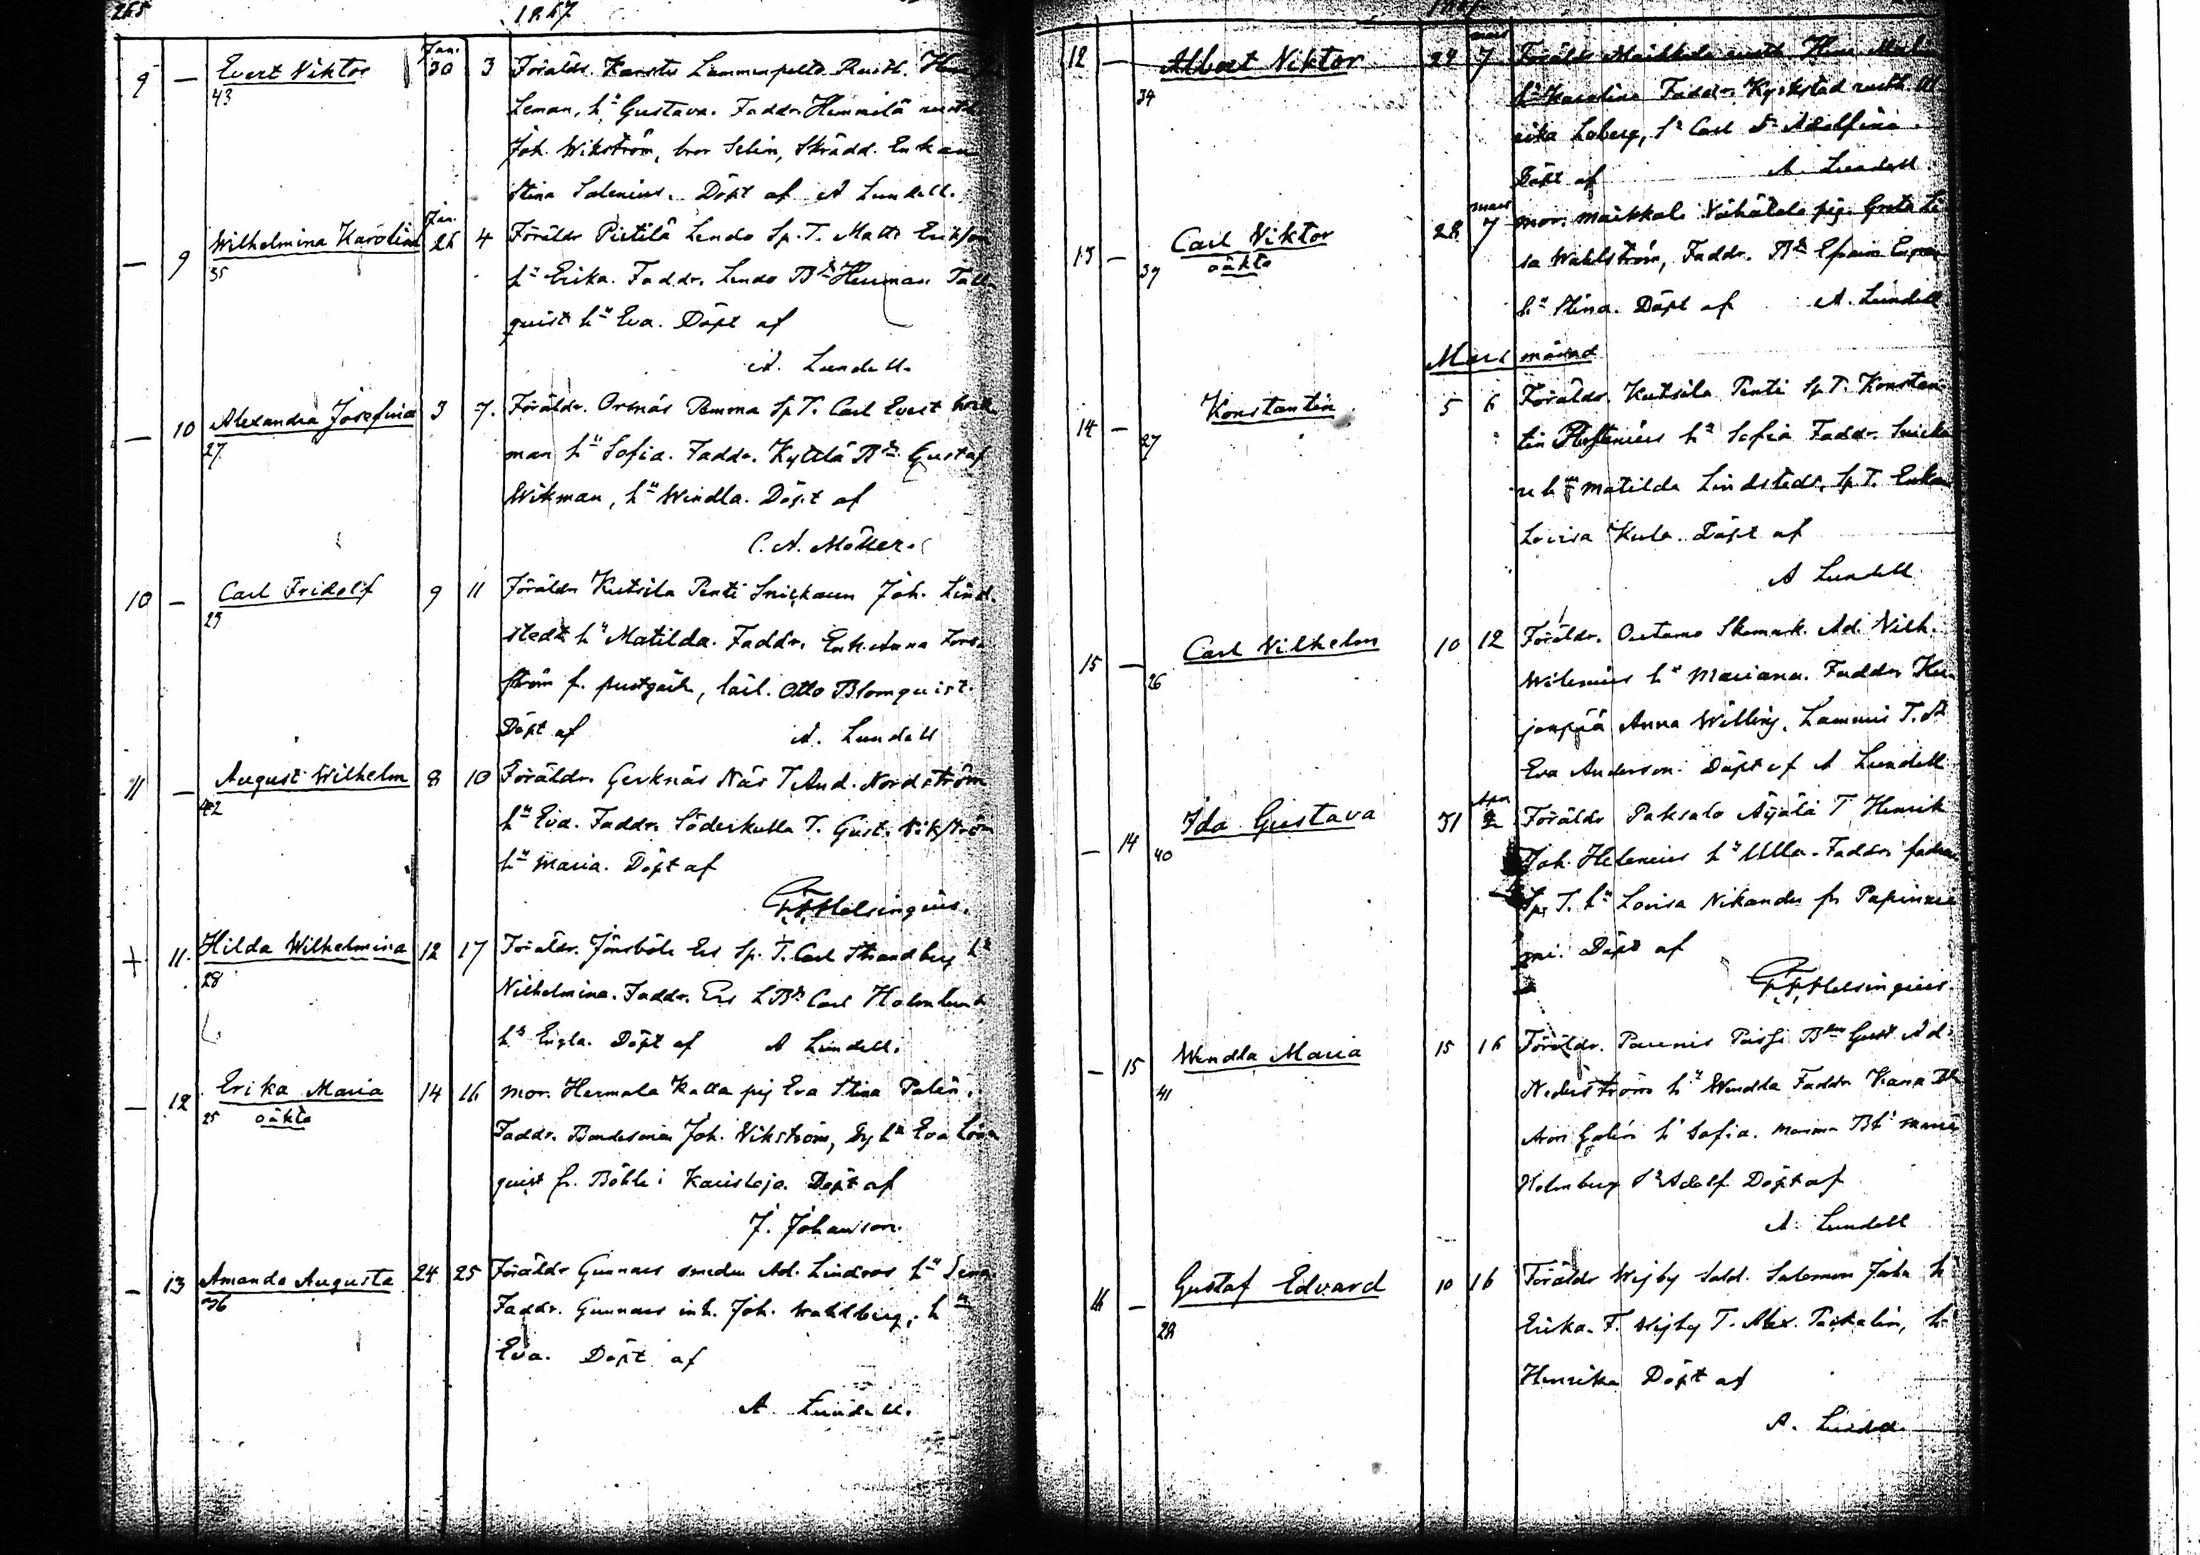 265 1867
9 — Evert Viktor Jan. 30 3 Föräldr. Karstu Lammenpelto Rusth.
43 Leman, hu Gustava. Faddr. Hemmilä rusth.
Joh. Wikström, bror Selin, Skrädd. Enkan
Stina Salenius. Döpt af A Lundell.
— 9 Wilhelmina Karolina Jan. 26 4 Föräldr Pietilä Lindo Sp. T. Matts Erikson
35 hu Erika. Faddr. Lindo Bd Herman Tall-
quist hu Eva. Döpt af
A. Lundell.
— 10 Alexandra Josefina 3 7. Föräldr. Ornäs Pemma Sp T. Carl Evert
27 man hu Sofia. Faddr. Kyttlä Bd Gustaf
Wikman, hu Windla. Döpt af
C. A. Möller.
10 — Carl Fridolf 9 11 Föräldr Kutsila Penti Snickaren Joh. Lind-
29 stedt hu Matilda. Faddr. Enk. Anna
ström f. prestgård, lärl. Otto Blomquist.
Döpt af A. Lundell
11 — August Wilhelm 8 10 Föräldr. Gerknäs Näs T. And. Nordström
42 hu Eva. Faddr. Söderkulla T. Gust. Wikström
hu Maria. Döpt af
F. F. Helsingius.
+ 11. Hilda Wilhelmina 12 17 Föräldr. Jönsböle Ers Sp. T. Carl Strandberg hu
28 Wilhelmina. Faddr. Ers L Bd Carl Holmlund
hu Engla. Döpt af A Lundell.
— 12 Erika Maria 14 16 mor. Hermala Kalla pig Eva Stina Palén.
25 oäkta Faddr. Bondesonen Joh. Wikström, hu Eva Lön
quist fr. Böhle i Karisloja. Döpt af
J. Johanson.
— 13 Amanda Augusta 24 25 Föräldr Gunnars smeden Ad. Lindroos hu
36 Faddr. Gunnars inh. Joh. Wahlberg, hu
Eva. Döpt af
A Lundell.
12 — Albert Viktor 24 mars 7 Föräldr Maikkala rusth.
34 hu Karolina Faddr. Kyrkstad rusth.
rika Loberg, Sn Carl Dr Adolfina.
Döpt af A. Lundell
13 — Carl Viktor 28 mars 7 mor. Maikkala Vähätalo pig. Greta Li
39 oäkta sa Wahlström, Faddr. Bd Efraim
hu Stina. Döpt af A. Lundell
Mars månad
14 — Konstantin 5 6 Föräldr. Kutsila Penti Sp T. Konstan-
27 tin hu Sofia Faddr. Snicka
re hu Matilda Lindstedt, Sp T. Enkan
Lovisa Kula. Döpt af
A Lundell
15 — Carl Wilhelm 10 12 Föräldr. Outamo Skomak. Ad. Wilh.
26 Wilenius hu Mariana. Faddr
Anna Willing, Lammi T. dr
Eva Anderson. Döpt af A Lundell
— 14 Ida Gustava 31 Apr 2 Föräldr Paksalo Äijälä T Henrik
40 Joh. Helenius hu Ulla. Faddr
Sp. T. hu Lovisa Nikander fr Papinnie
mi. Döpt af
F. F. Helsingius.
— 15 Wendla Maria 15 16 Föräldr. Paunis Bden Gust. Ad.
41 Nederström hu Wendla Faddr Bd
Aron Galén hu Sofia. Maria
Holmberg Sn Adolf Döpt af
A. Lundell
16 — Gustaf Edvard 10 16 Föräldr Wejby Sold. Salomon hu
28 Erika. F. Wejby T. Alex. Packalén, hu
Henrika Döpt af
A. Lundell